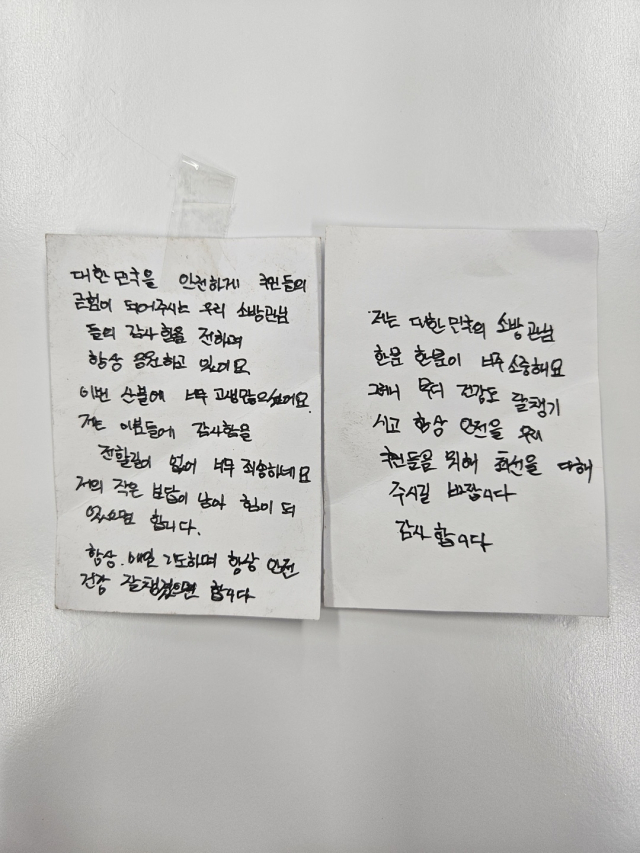 대한민국을 안전하게 국민들의
근험이 되어주시는 우리 소방관님
들의 감사함을 전하며
항상 응원하고 있어요
이번 산불에 너무 고생많으셨어요.
저는 이분들에 감사함을
전할길이 없어 너무 죄송하네요
저의 작은 보답이 남아 힘이 되
었으면 합니다.
항상. 매일 기도하며 항상 안전
건강 잘챙겼으면 합니다
저는 대한민국의 소방관님
한분 한분이 너무 소중해요
그러니 부디 건강도 잘챙기
시고 항상 안전을 우리
국민들을 위해 최선을 다해
주시길 바랍니다
감사합니다